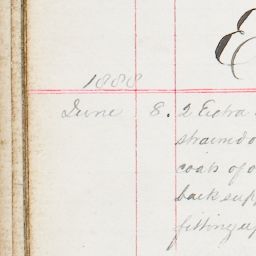 E
1888
June 8. 2 Extra
strained o
coats of o
back supp
fitting up